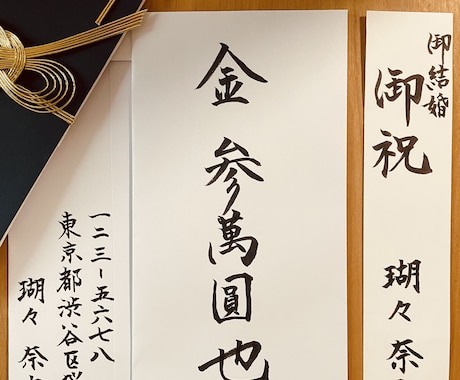 御結婚
御祝
瑚々 奈
金 参萬圓也
一二三ー五六七八
東京都渋谷区
瑚々 奈